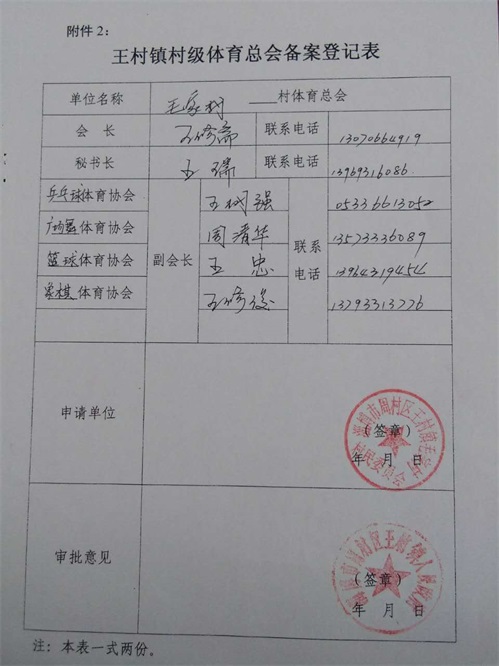 附件2:
王村镇村级体育总会备案登记表
单位名称 毛家村 村体育总会
会 长 王修斋 联系电话 13070664919
秘书长 王 瑞 联系电话 13969316086
乒乓球体育协会 王树强 0533 6613052
广场舞体育协会 周春华 13573336089
副会长 联系电话
篮球体育协会 王 忠 13964319454
象棋体育协会 13793313776
申请单位
(签章)
年 月 日
淄博市周村区王村镇
村民委员会
审批意见
(签章)
年 月 日
注: 本表一式两份。